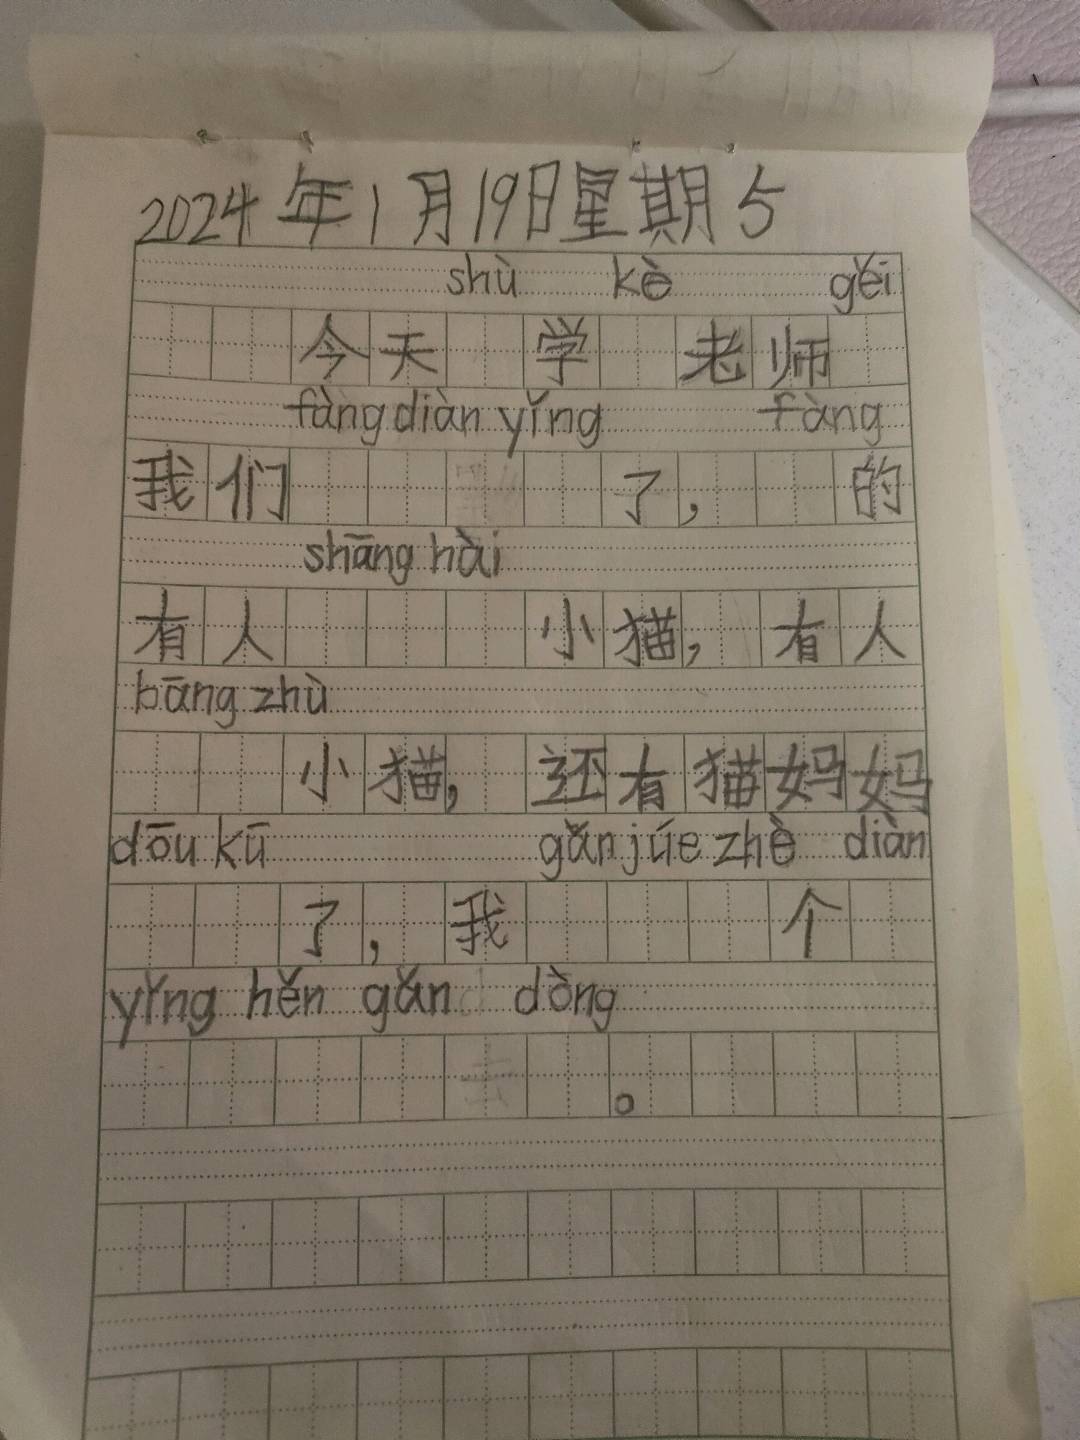 2024年1月19日星期5
shù kè gěi
今天 学 老师
fàng diàn yǐng fàng
我们 了, 的
shāng hài
有人 小猫, 有人
bāng zhù
小猫, 还有猫妈妈
dōu kū gǎn júe zhè diàn
了, 我 个
yǐng hěn gǎn dòng
。